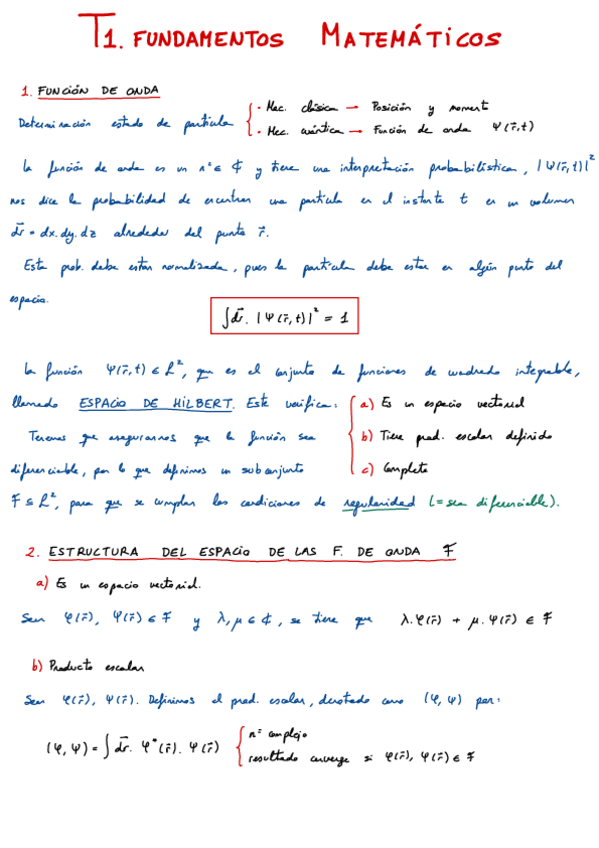 T1. FUNDAMENTOS MATEMÁTICOS
1. FUNCIÓN DE ONDA
Determinación estado de partícula { · Mec. clásica → Posición y moment
· Mec. cuántica → Función de onda Ψ(r̄,t)
La función de onda es un nº ∈ ₵ y tiene una interpretación probabilística, |Ψ(r̄,t)|²
nos dice la probabilidad de encontrar una partícula en el instante t en un volumen
dr̄ = dx.dy.dz alrededor del punto r̄.
Esta prob. debe estar normalizada, pues la partícula debe estar en algún punto del
espacio.
∫dr̄. |Ψ(r̄,t)|² = 1
La función Ψ(r̄,t) ∈ L², que es el conjunto de funciones de cuadrado integrable,
llamado ESPACIO DE HILBERT. Este verifica: { a) Es un espacio vectorial
Tenemos que asegurarnos que la función sea b) Tiene prod. escalar definido
diferenciable, por lo que definimos un subconjunto c) Completo
F ⊆ L², para que se cumplan las condiciones de regularidad (= sea diferenciable).
2. ESTRUCTURA DEL ESPACIO DE LAS F. DE ONDA F
a) Es un espacio vectorial.
Sean φ(r̄), Ψ(r̄) ∈ F y λ,μ ∈ ₵, se tiene que λ.φ(r̄) + μ.Ψ(r̄) ∈ F
b) Producto escalar
Sean φ(r̄), Ψ(r̄). Definimos el prod. escalar, denotado como (φ,Ψ) por:
(φ,Ψ) = ∫dr̄. φ*(r̄). Ψ(r̄) { nº complejo
resultado converge si φ(r̄), Ψ(r̄) ∈ F